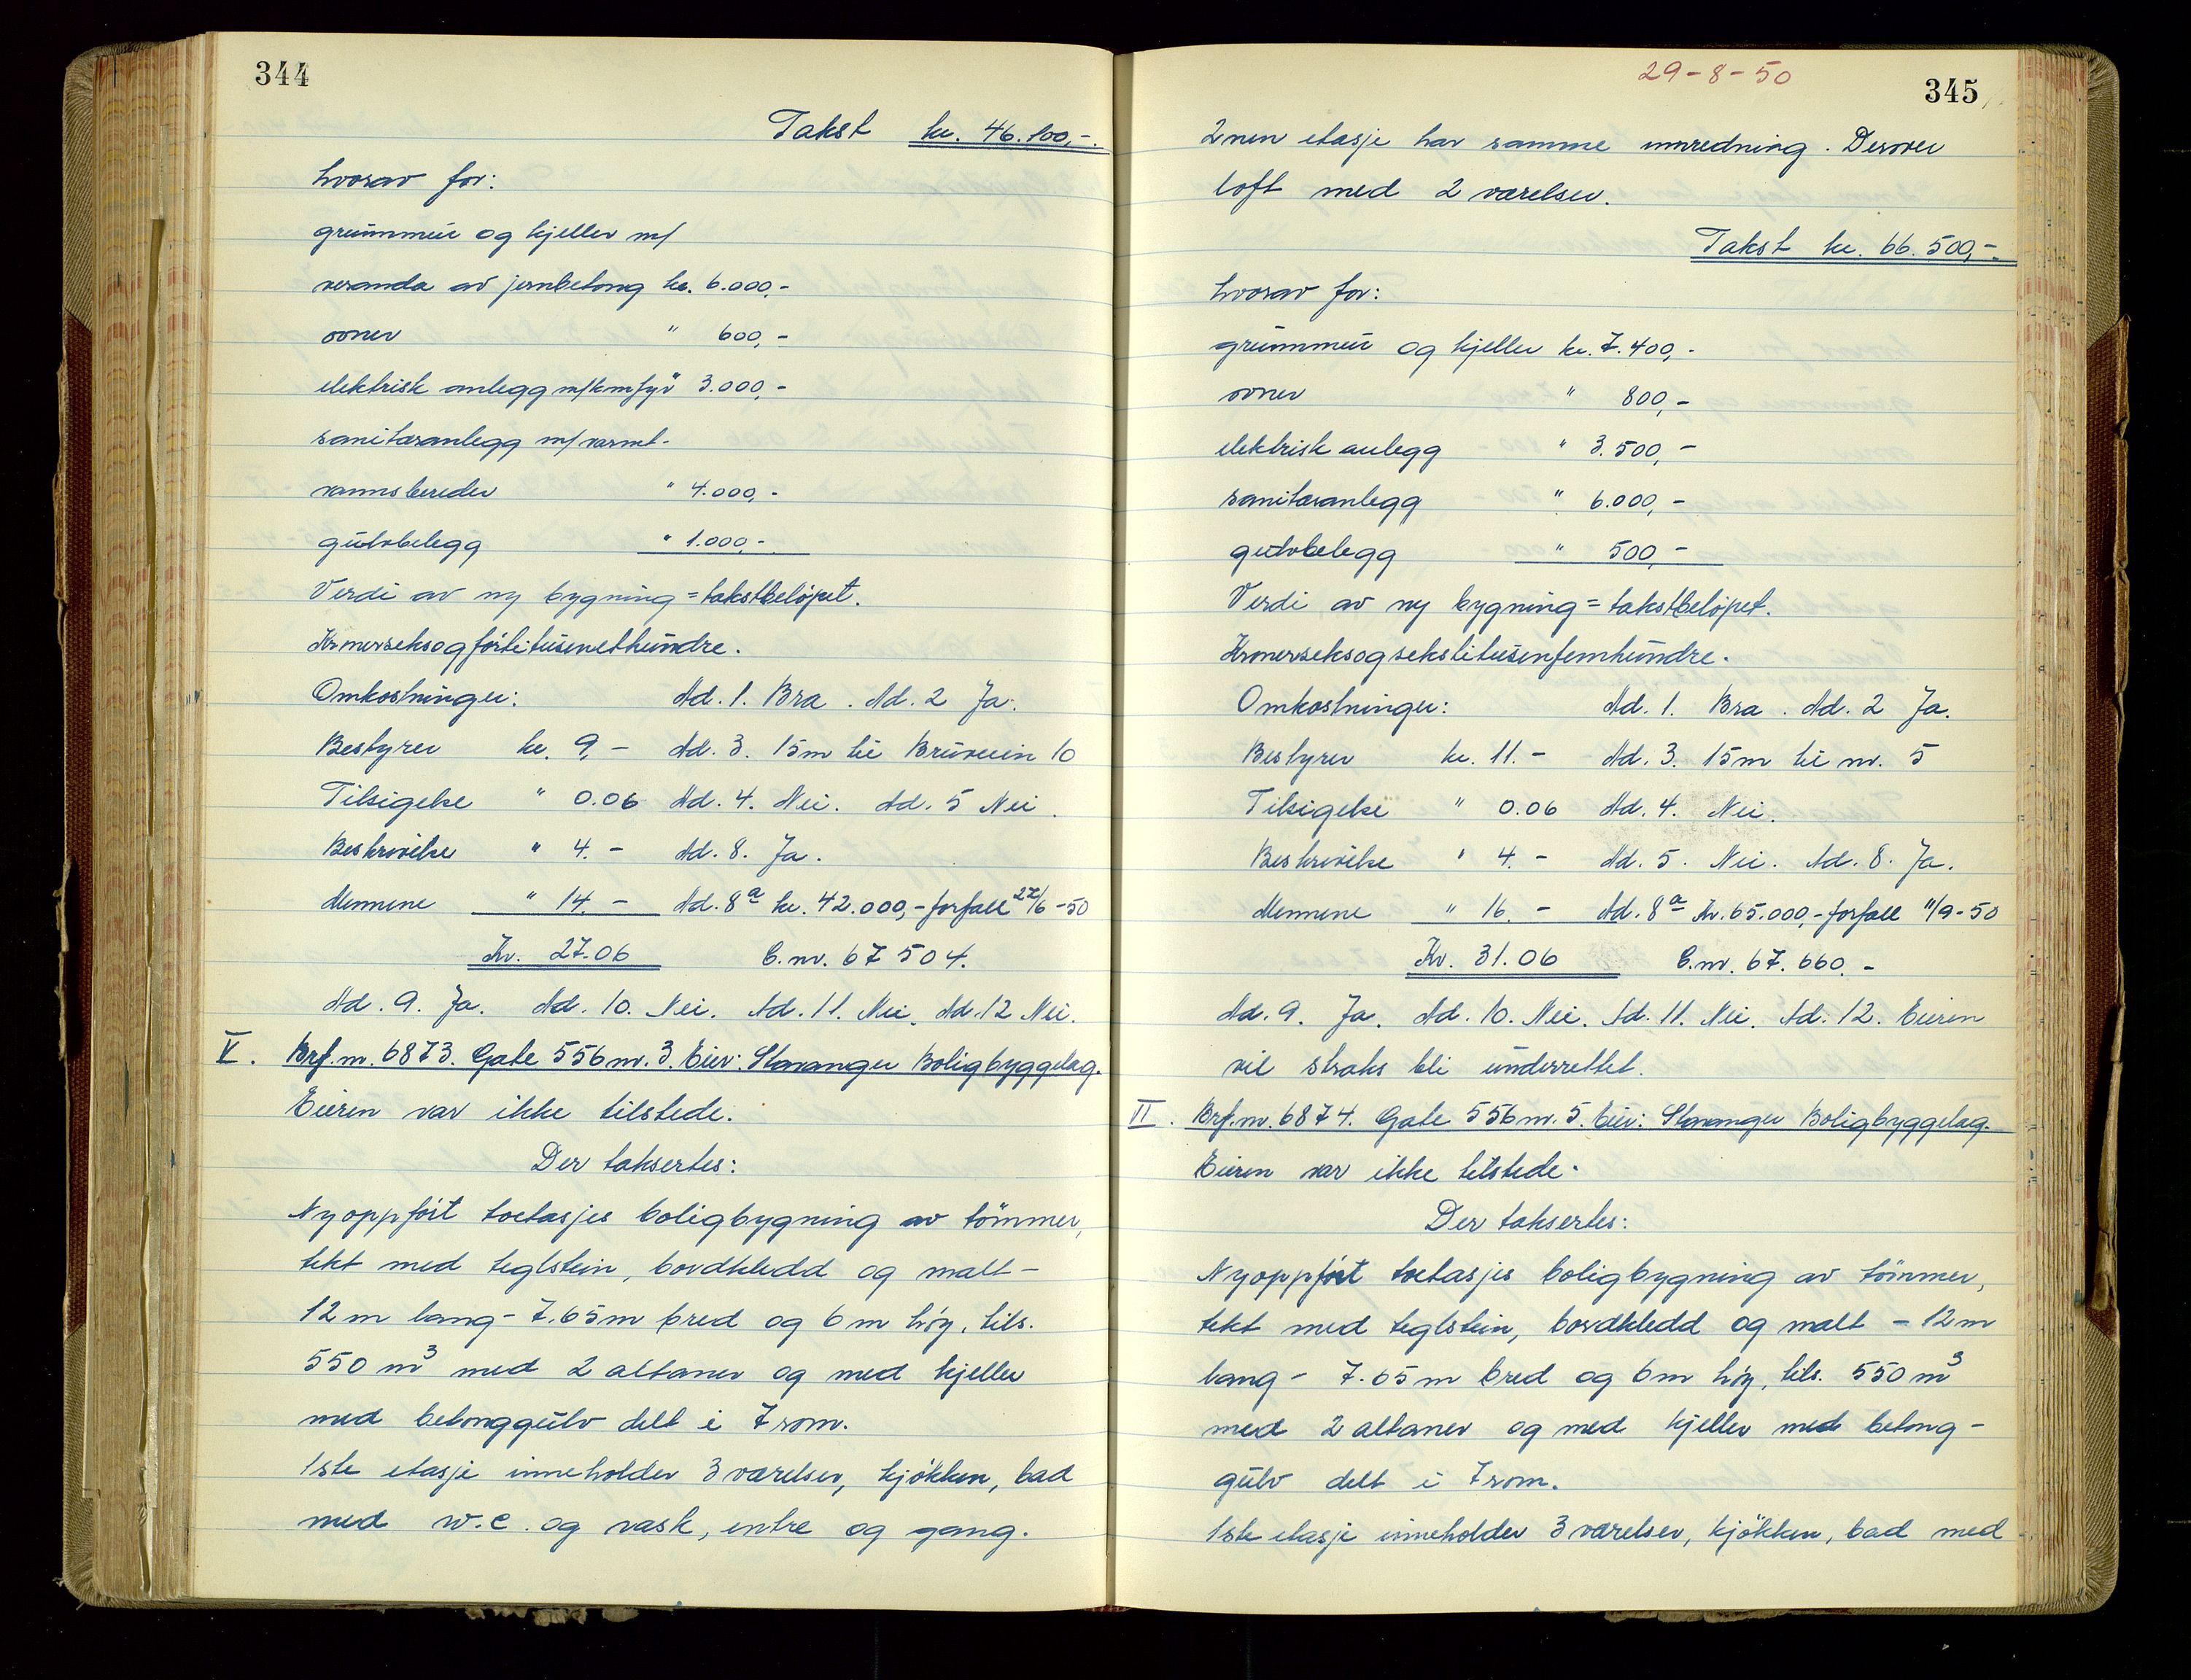 344
Takst kr. 46.100,-.
hvorav for:
grunnmur og kjeller m/
veranda av jernbetong kr. 6.000,-
ovner " 600,-
elektrisk anlegg m/komfyr " 3.000,-
sanitæranlegg m/varmt-
vannsbereder " 4.000,-
gulvbelegg " 1.000,-
Verdi av ny bygning = takstbeløpet.
Kronerseksogförtitusenethundre.
Omkostninger: Ad. 1. Bra. Ad. 2 Ja.
Bestyrer kr. 9,- Ad. 3. 15m til Bruveien 10
Tilsigelse " 0.06 Ad. 4. Nei. Ad. 5 Nei.
Beskrivelse " 4.- Ad. 8. Ja.
Mennene " 14.- Ad. 8a kr. 42.000,- forfall 27/6-50
Kr. 27.06 B.nr. 67504.
Ad. 9. Ja. Ad. 10. Nei. Ad. 11. Nei. Ad. 12 Nei.
V. Brf.nr. 6873. Gate 556 nr. 3. Eier: Stavanger Boligbyggelag.
Eieren var ikke tilstede.
Der taksertes:
Nyoppført toetasjes boligbygning av tömmer,
tekt med teglstein, bordkledd og malt -
12 m lang - 7.65 m bred og 6 m høy, tils.
550 m3 med 2 altaner og med kjeller
med betonggulv delt i 7 rom.
1ste etasje inneholder 3 værelser, kjökken, bad
med w.c. og vask, entre og gang.
29-8-50
345
2nen etasje har samme innredning. Derover
loft med 2 værelser.
Takst kr. 66.500,-.
hvorav for:
grunnmur og kjeller kr. 7.400,-
ovner " 800,-
elektrisk anlegg " 3.500,-
sanitæranlegg " 6.000,-
gulvbelegg " 500,-
Verdi av ny bygning = takstbeløpet.
Kronerseksogsekstitusenfemhundre.
Omkostninger: Ad. 1. Bra. Ad. 2 Ja.
Bestyrer kr. 11.- Ad. 3. 15m til nr. 5
Tilsigelse " 0.06 Ad. 4. Nei.
Beskrivelse " 4.- Ad. 5. Nei. Ad. 8. Ja.
Mennene " 16.- Ad. 8a Kr. 65.000,- forfall 11/9-50
Kr. 31.06 B.nr. 67.660.-
Ad. 9. Ja. Ad. 10. Nei. Ad. 11. Nei. Ad. 12. Eieren
vil straks bli underrettet.
VI. Brf.nr. 6874. Gate 556 nr. 5. Eier: Stavanger Boligbyggelag.
Eieren var ikke tilstede.
Der taksertes:
Nyoppført toetasjes boligbygning av tömmer,
tekt med teglstein, bordkledd og malt - 12 m
lang - 7.65 m bred og 6 m høy, tils. 550 m3
med 2 altaner og med kjeller med betong-
gulv delt i 7 rom.
1ste etasje inneholder 3 værelser, kjökken, bad med